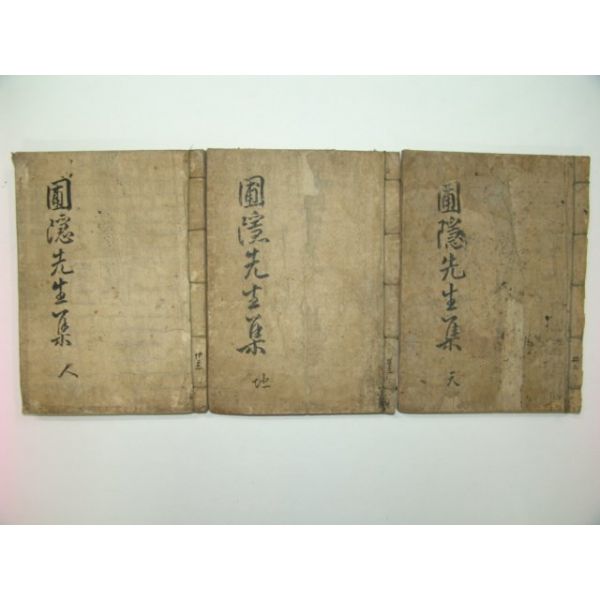 圃隱先生集
天
圃隱先生集
地
圃隱先生集
人